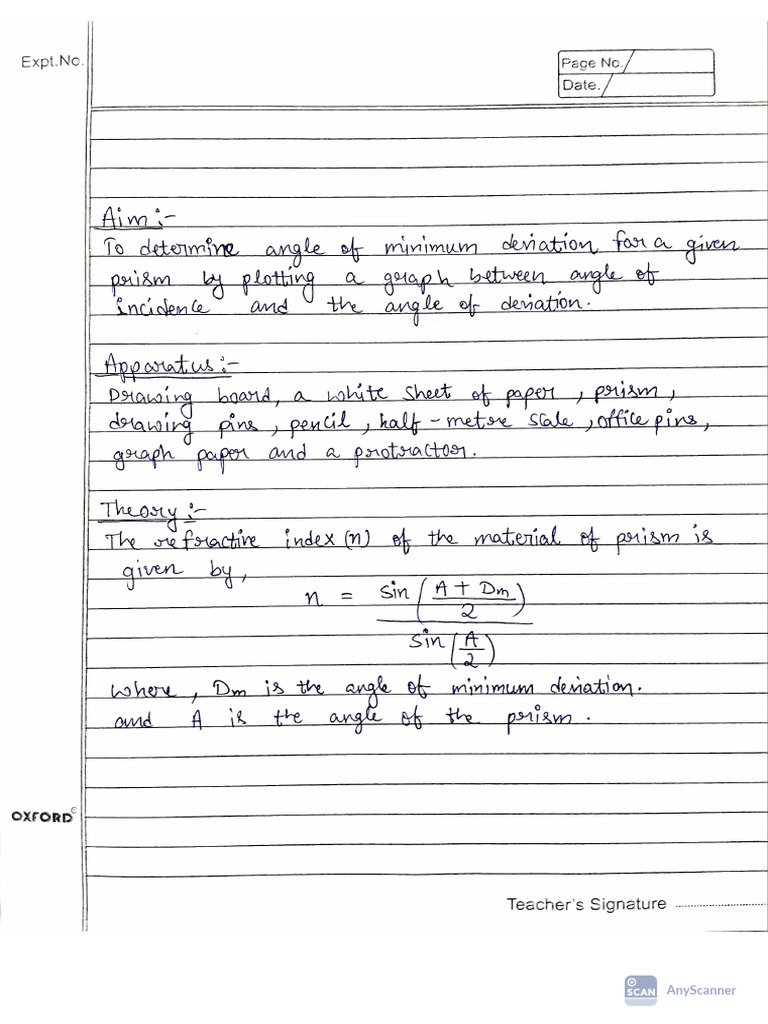 Expt.No.
Page No.
Date.
Aim :-
To determine angle of minimum deviation for a given
prism by plotting a graph between angle of
incidence and the angle of deviation.
Apparatus :-
Drawing board, a white sheet of paper, prism,
drawing pins, pencil, half-metre scale, office pins,
graph paper and a protractor.
Theory :-
The refractive index (n) of the material of prism is
given by,
n = sin (A + Dm / 2)
sin (A / 2)
where, Dm is the angle of minimum deviation.
and A is the angle of the prism.
OXFORD©
Teacher's Signature ....................
SCAN AnyScanner